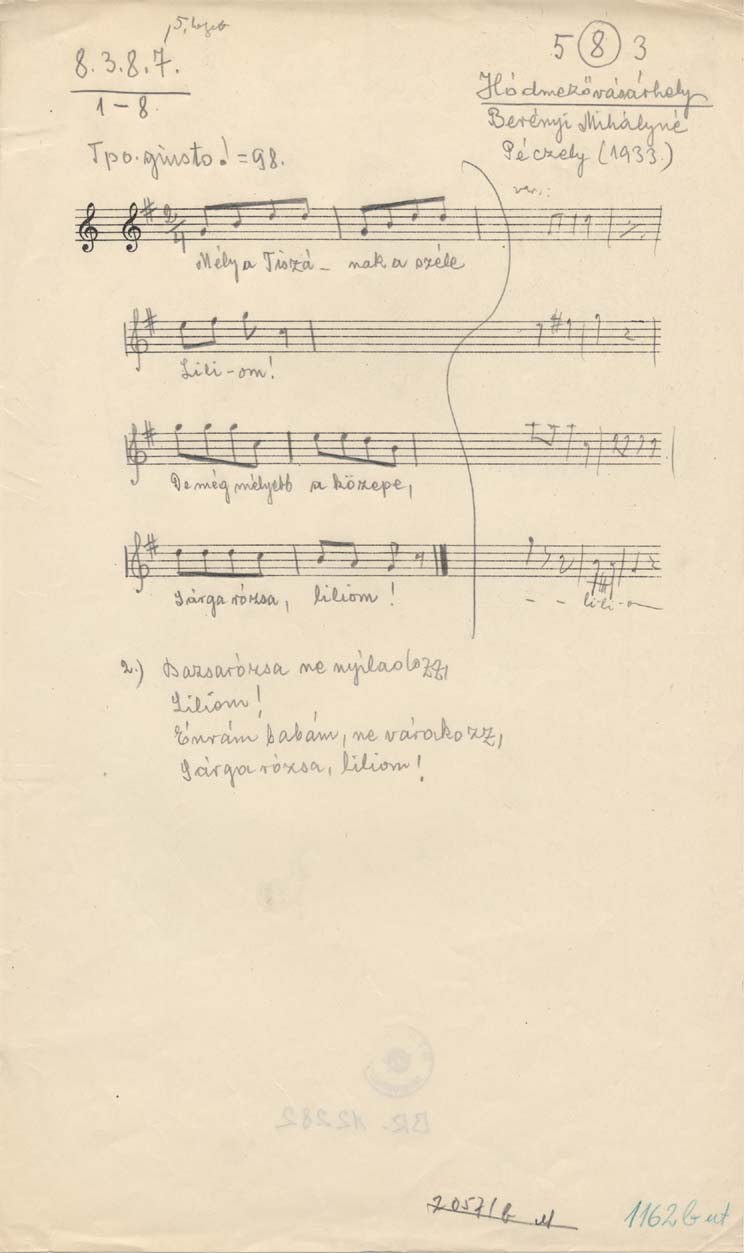 5 8 3
8. 3. 8. 7.
1 – 8.
Hódmezővásárhely
Berényi Mihályné
Péczely (1933.)
Tpo. giusto ♩ = 98.
var.:
2/4
Mély a Tiszá – nak a széle
Lili – om!
De még mélyebb a közepe,
Sárga rózsa, liliom!
– – li-li-o
2.) Bazsarózsa ne nyiladozz,
Liliom!
Énrám babám, ne várakozz,
Sárga rózsa, liliom!
BR. 12282
1162